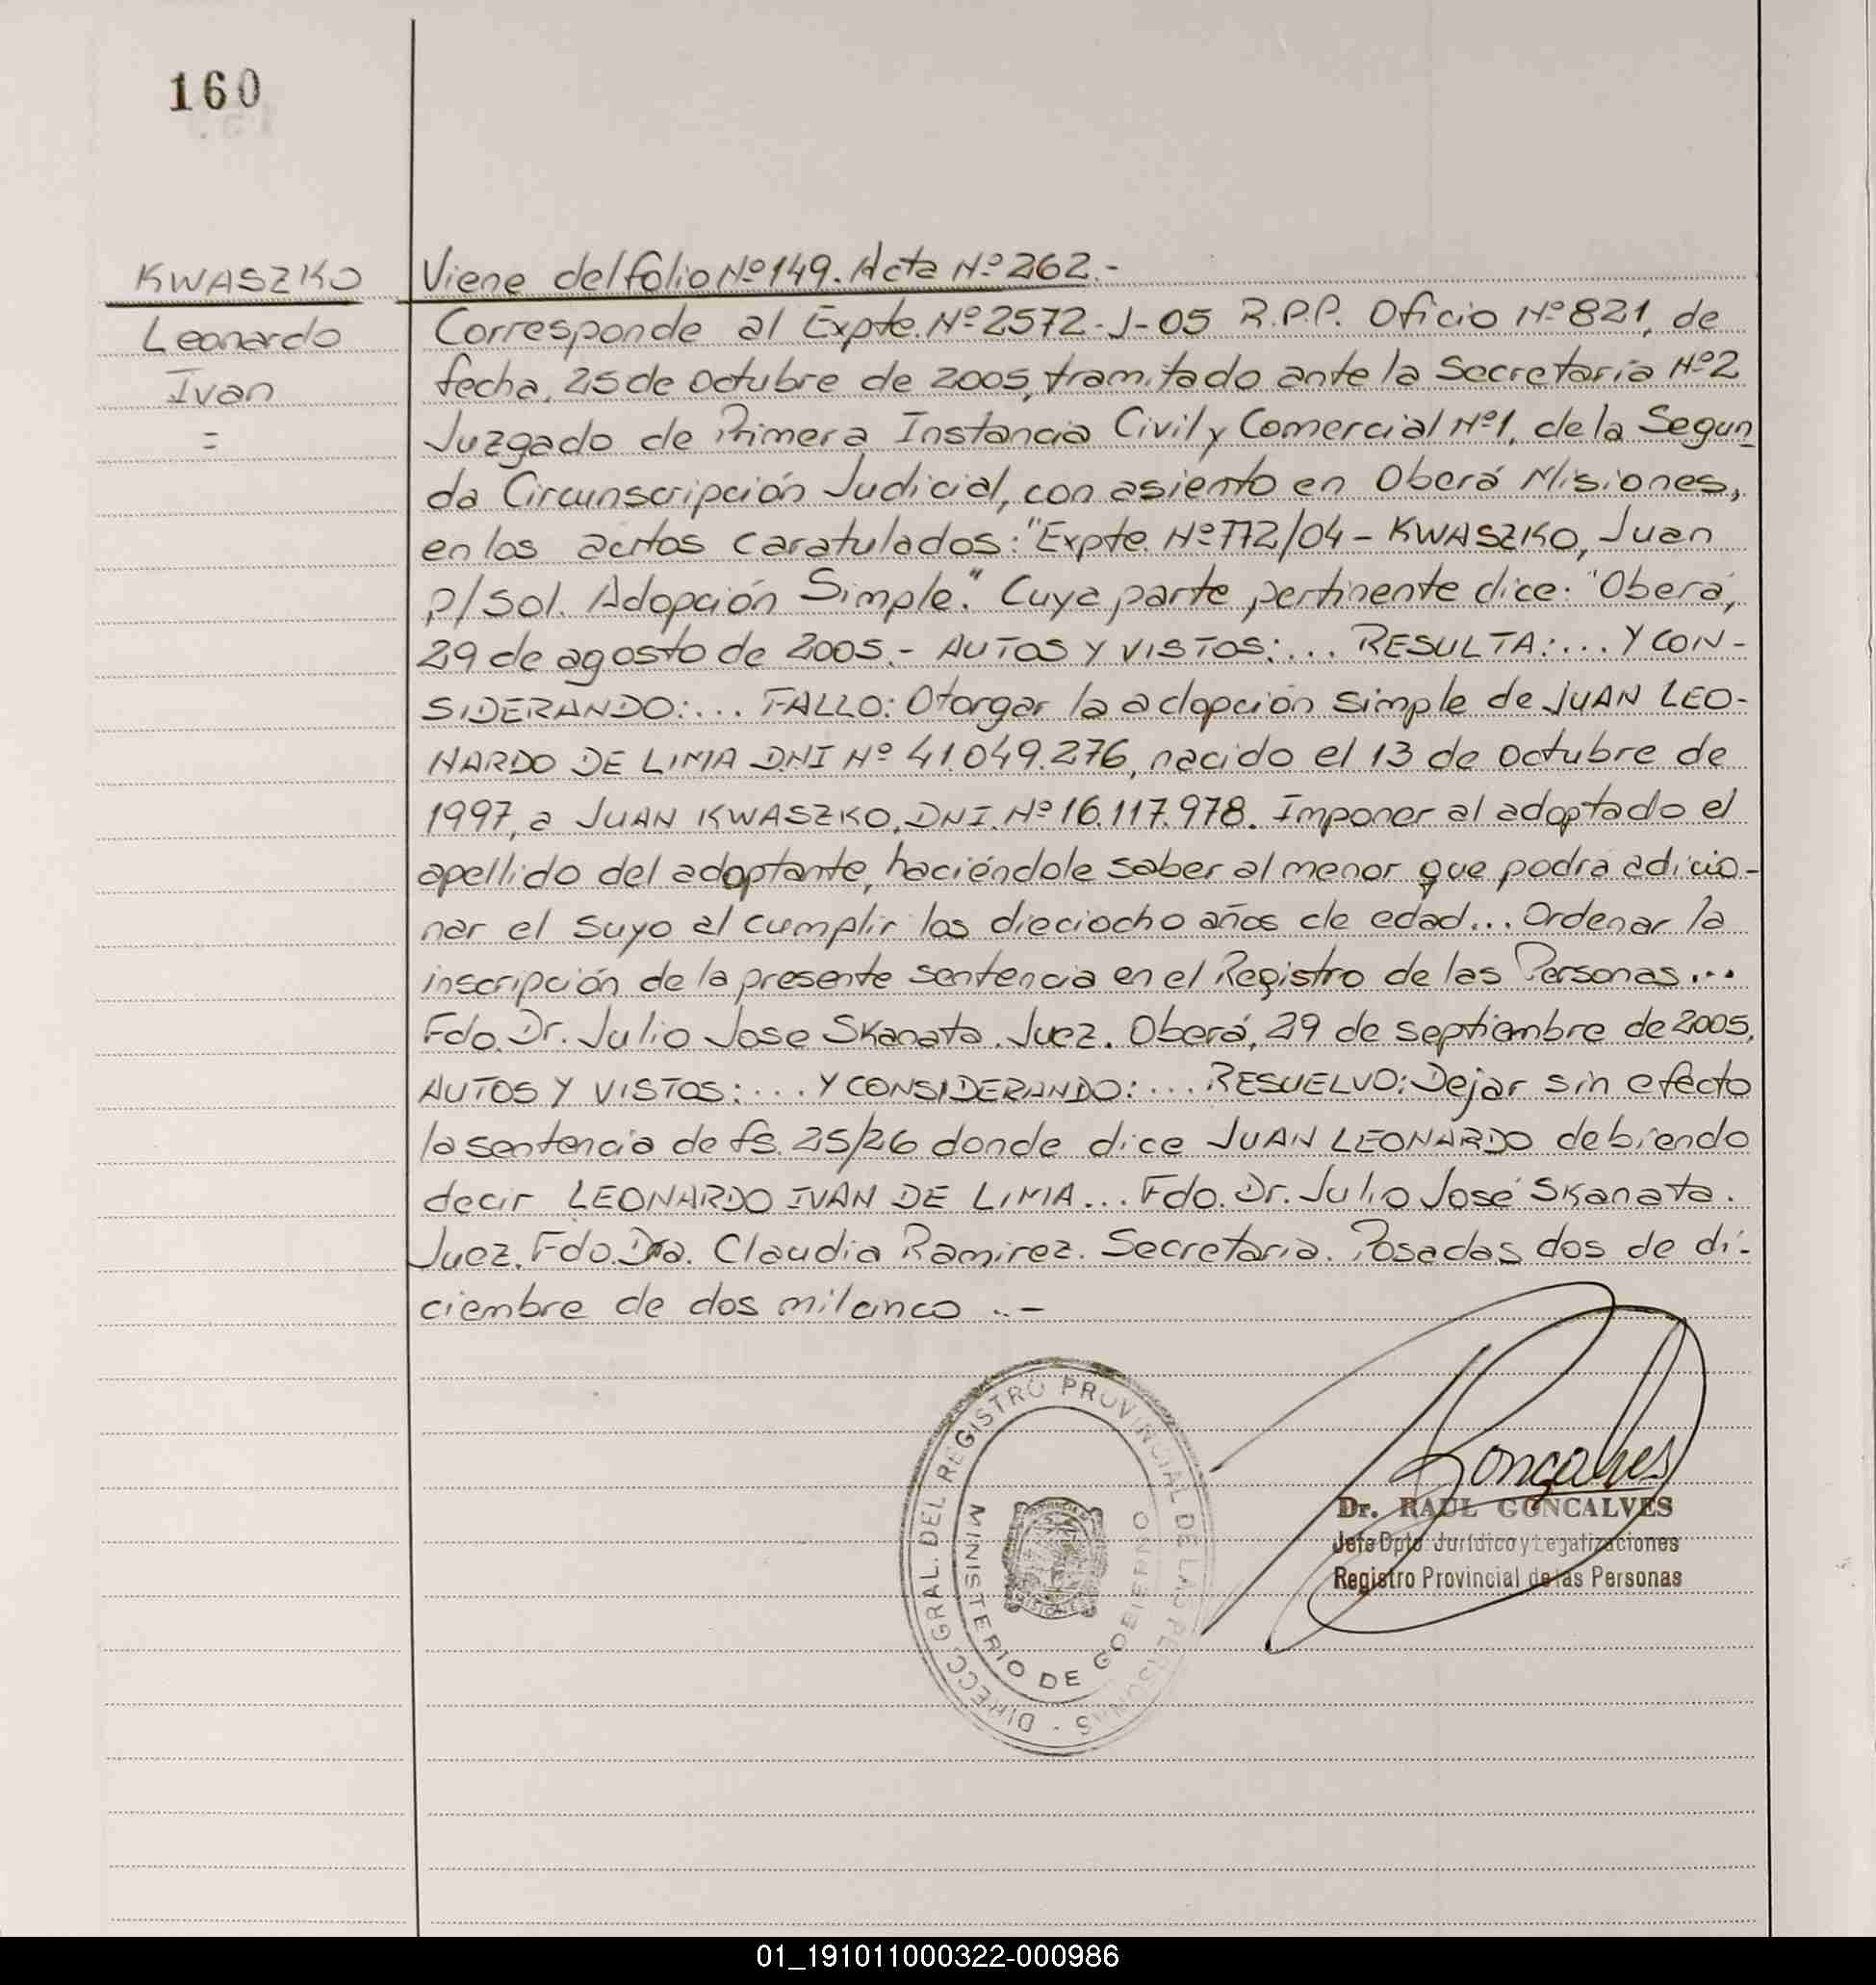 160
KWASZKO
Leonardo
Ivan
=
Viene del folio Nº 149. Acta Nº 262.-
Corresponde al Expte. Nº 2572-J-05 R.P.P. Oficio Nº 821, de
fecha, 25 de octubre de 2005, tramitado ante la Secretaría Nº 2
Juzgado de Primera Instancia Civil y Comercial Nº 1, de la Segun
da Circunscripción Judicial, con asiento en Oberá Misiones,
en los autos caratulados: "Expte. Nº 772/04 - KWASZKO, Juan
p/sol. Adopción Simple." Cuya parte pertinente dice: "Oberá,
29 de agosto de 2005.- AUTOS Y VISTOS:... RESULTA:... Y CON-
SIDERANDO:... FALLO: Otorgar la adopción simple de JUAN LEO-
NARDO DE LIMA DNI Nº 41.049.276, nacido el 13 de octubre de
1997, a JUAN KWASZKO, DNI. Nº 16.117.978. Imponer al adoptado el
apellido del adoptante, haciéndole saber al menor que podrá adicio-
nar el suyo al cumplir los dieciocho años de edad... Ordenar la
inscripción de la presente sentencia en el Registro de las Personas...
Fdo. Dr. Julio Jose Skanata. Juez. Oberá, 29 de septiembre de 2005,
AUTOS Y VISTOS:... Y CONSIDERANDO:... RESUELVO: Dejar sin efecto
la sentencia de fs. 25/26 donde dice JUAN LEONARDO debiendo
decir LEONARDO IVAN DE LIMA... Fdo. Dr. Julio José Skanata.
Juez. Fdo. Dra. Claudia Ramirez. Secretaria. Posadas dos de di-
ciembre de dos mil cinco ..-
DIRECC. GRAL. DEL REGISTRO PROVINCIAL DE LAS PERSONAS -
MINISTERIO DE GOBIERNO
Gonçalves
Dr. RAUL GONCALVES
Jefe Dpto Jurídico y Legalizaciones
Registro Provincial de las Personas
01_191011000322-000986